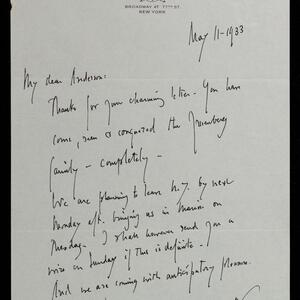 BROADWAY AT 77TH ST.
NEW YORK
May 11-1933
My dear Anderson:
Thanks for your charming letter. You have
come, seen & conquered the
family - completely -
We are planning to leave N.Y. by next
Monday aft. bringing us in Marion on
Tuesday. I shall however send you a
wire on Sunday if this is definite.
And we are coming with anticipatory pleasure.